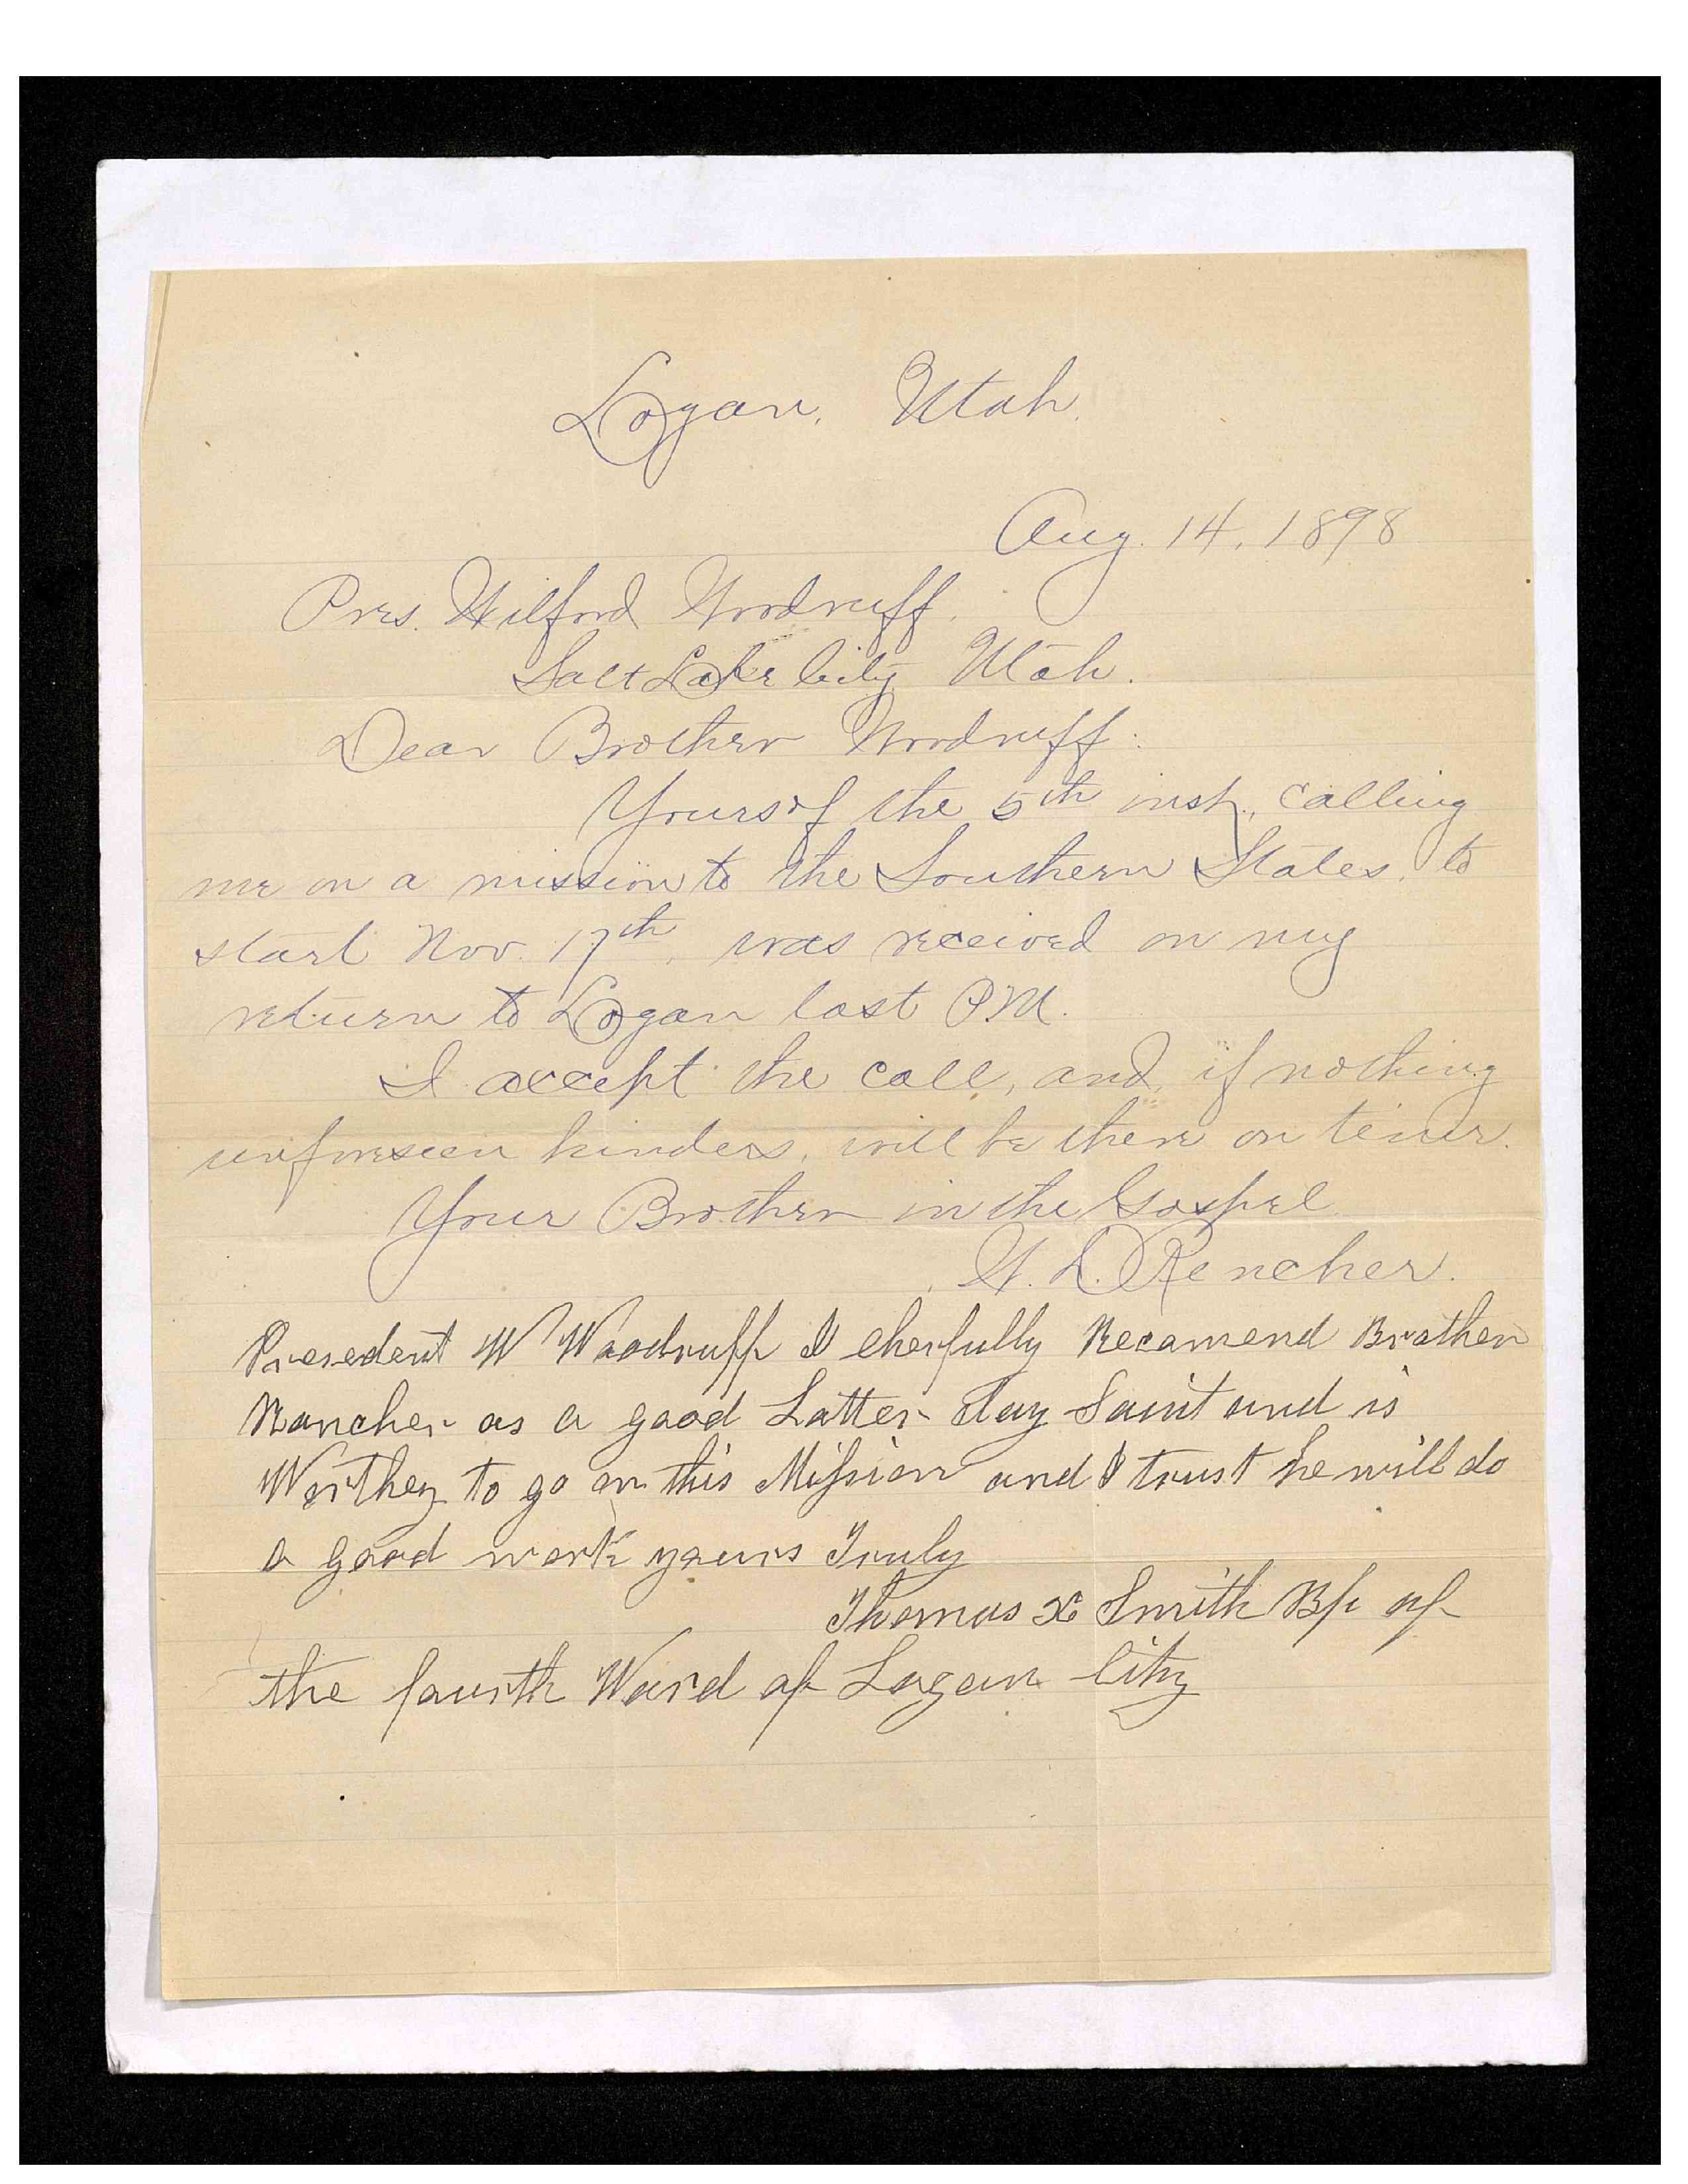 Logan, Utah.
Aug. 14, 1898
Pres. Wilford Woodruff.
Salt Lake City Utah.
Dear Brother Woodruff:
Yours of the 5th inst., calling
me on a mission to the Southern States, to
start Nov. 17th, was received on my
return to Logan last P.M.
I accept the call, and, if nothing
unforseen hinders, will be there on time.
Your Brother in the Gospel
Rencher.
Presedent W Woodruff I cherfully Recamend Brother
Rancher as a good Latter day Saint and is
Worthey to go on this Mission and I trust he will do
a good work yours Truly
Thomas X Smith Bp of
the fourth Ward of Logan City